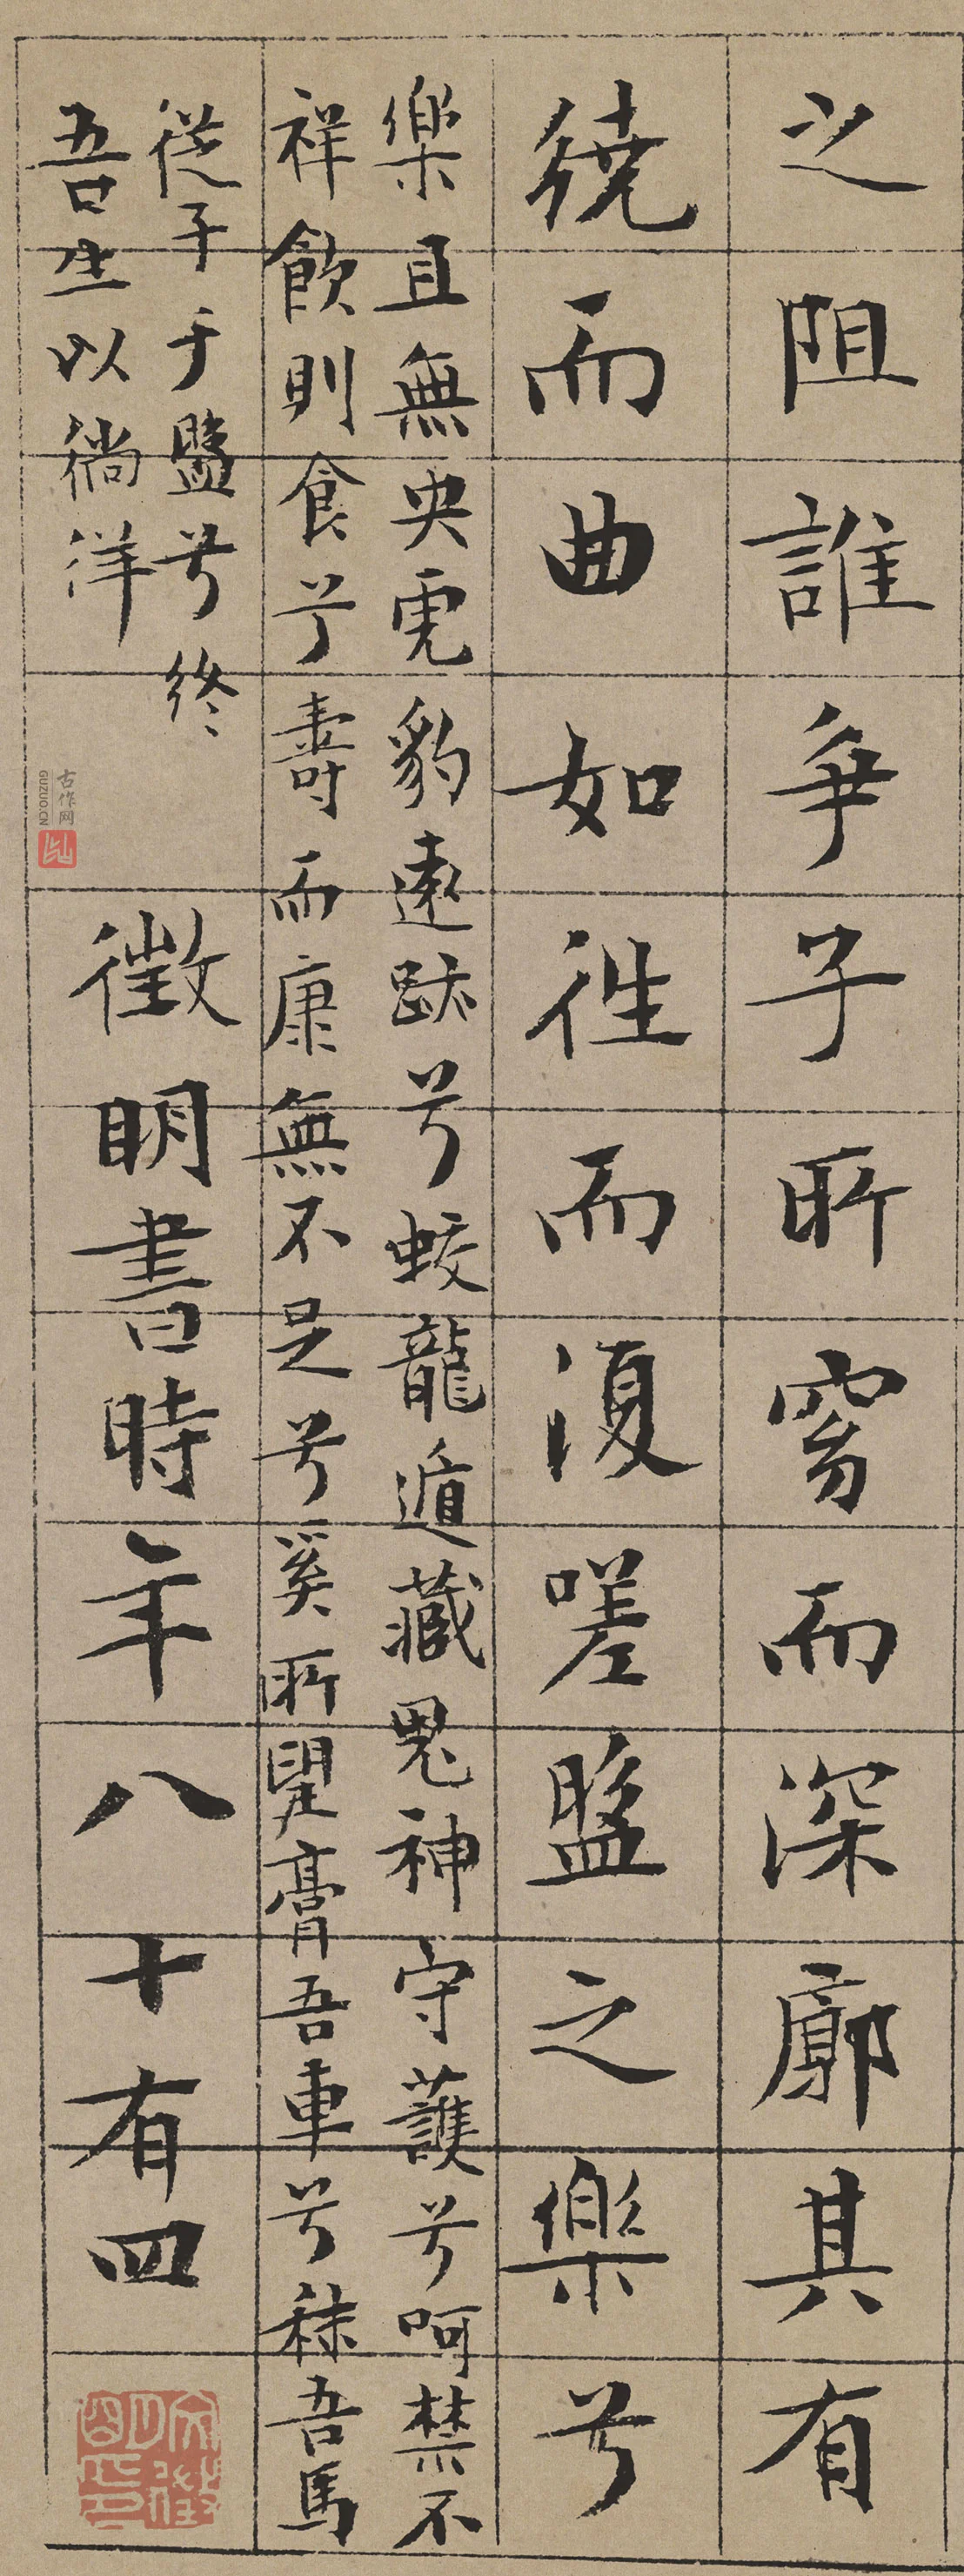 之阻誰爭子所窈而深廓其有
繞而曲如往而復嗟盤之樂兮
樂且無央虎豹遠跡兮蛟龍遁藏鬼神守護兮呵禁不
祥飲則食兮壽而康無不足兮奚所望膏吾車兮秣吾馬
從子于盤兮終
吾生以徜徉
徵明書時年八十有四
古作网
GUZUO.CN